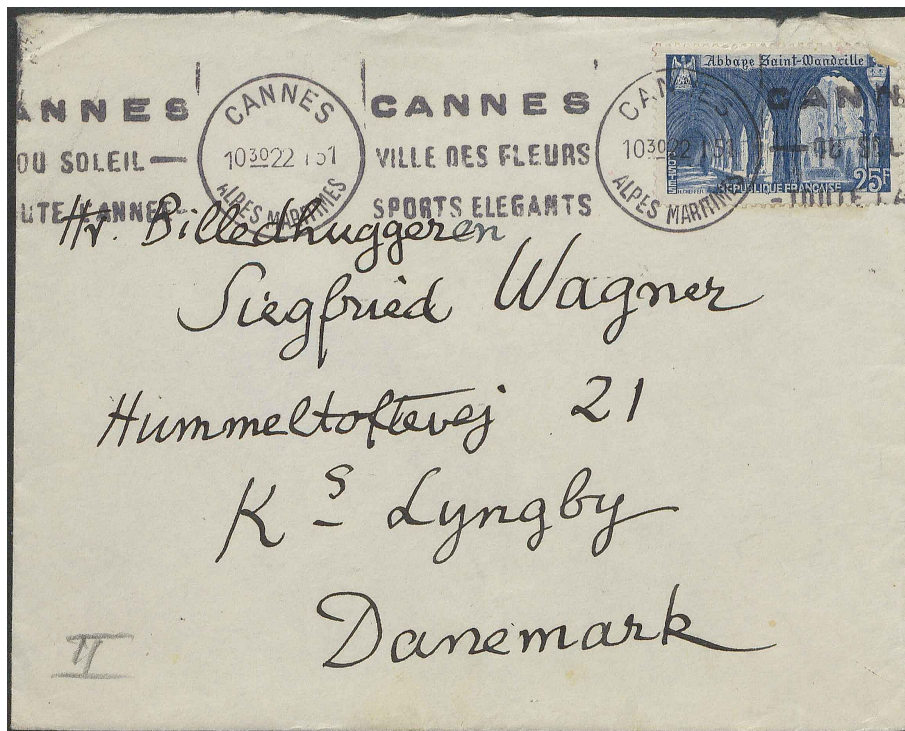 ANNES
DU SOLEIL —
CANNES
10 30 22 1 51
ALPES MARITIMES
CANNES
VILLE DES FLEURS
SPORTS ELEGANTS
CANNES
10 30 22 1 51
ALPES MARITIMES
Abbaye Saint-Wandrille
RÉPUBLIQUE FRANÇAISE
25F
Hr. Billedhuggeren
Siegfried Wagner
Hummeltoftevej 21
Ks Lyngby
Danemark
II